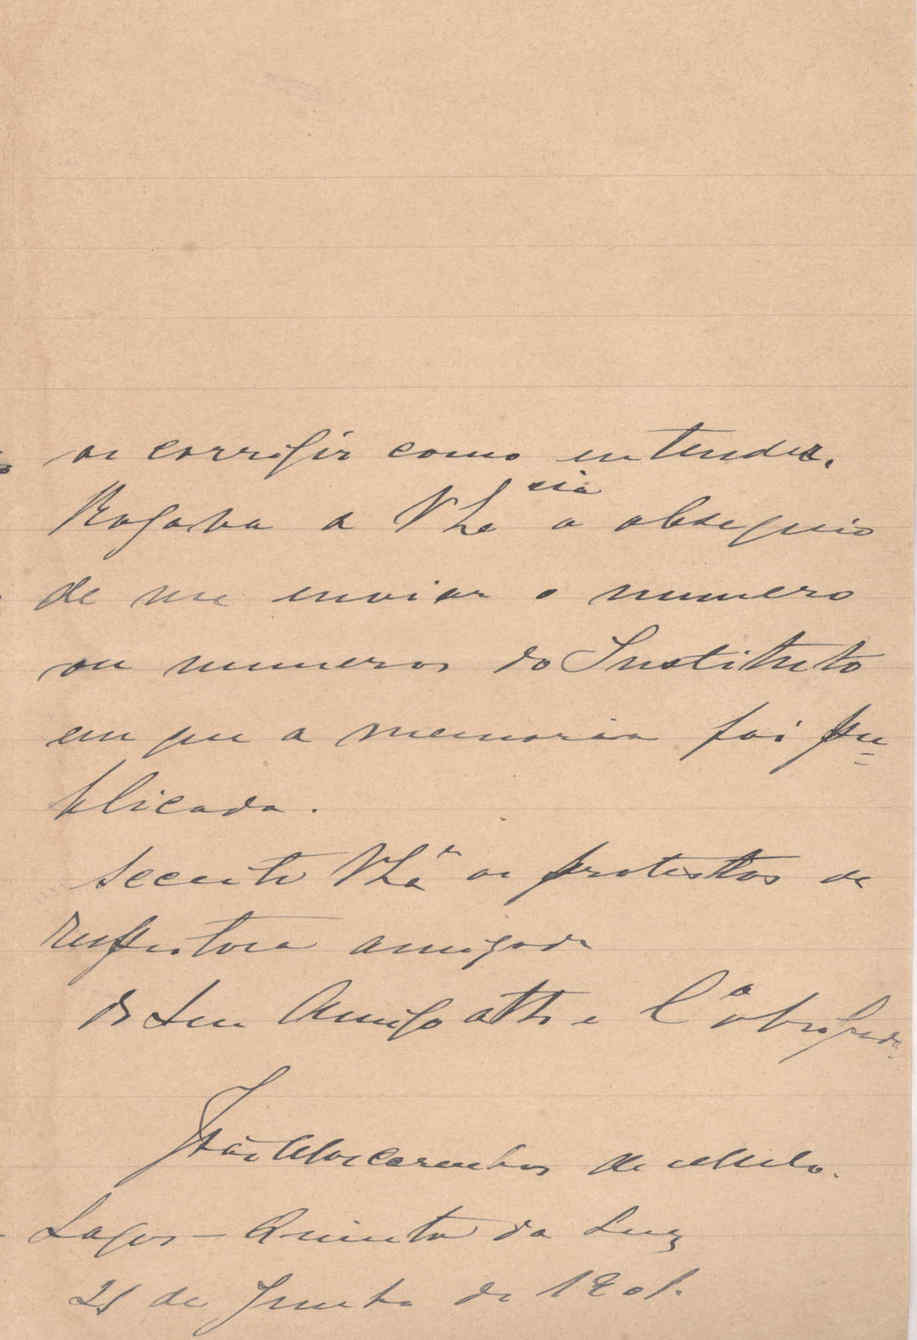 os corrigir como entender.
Rogava a V Ex.cia o obsequio
de me enviar o numero
ou numeros do Instituto
em que a memoria foi pu=
blicada.
Acceite V Ex.a os protestos de
respeitosa amizade
de Seu Amigo att.o e C.o obrigado
João de Mello.
Lagos – Quinta da Luz
21 de Junho de 1901.